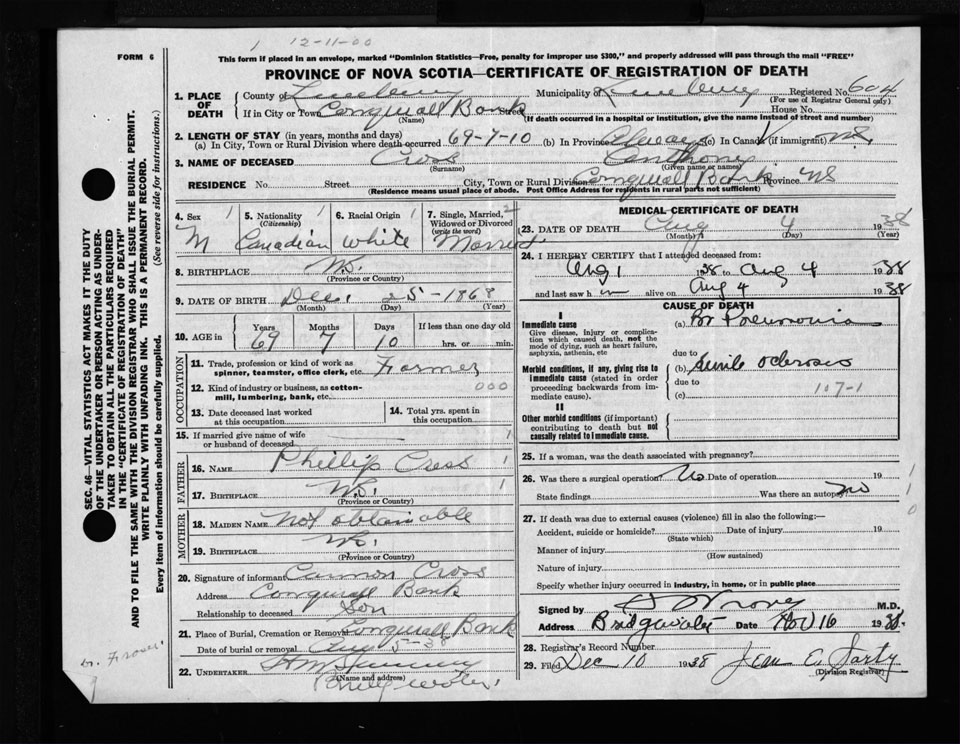 1 12-11-00
FORM 6
This form if placed in an envelope, marked "Dominion Statistics—Free, penalty for improper use $300," and properly addressed will pass through the mail "FREE"
PROVINCE OF NOVA SCOTIA—CERTIFICATE OF REGISTRATION OF DEATH
1. PLACE OF DEATH County of Lunenburg Municipality of Lunenburg Registered No. 604
(For use of Registrar General only)
If in City or Town Conquerall Bank Street House No.
(Name) (If death occurred in a hospital or institution, give the name instead of street and number)
2. LENGTH OF STAY (in years, months and days)
(a) In City, Town or Rural Division where death occurred 69-7-10 (b) In Province Always (c) In Canada (if immigrant) NS.
3. NAME OF DECEASED Cross Anthony
(Surname) (Given name or names)
RESIDENCE No. Street City, Town or Rural Division Conquerall Bank Province NS
(Residence means usual place of abode. Post Office Address for residents in rural parts not sufficient)
4. Sex 1 5. Nationality 1 6. Racial Origin 1 7. Single, Married, 2
(Citizenship) Widowed or Divorced
(write the word)
M Canadian White Married
8. BIRTHPLACE N.S.
(Province or Country)
9. DATE OF BIRTH Dec. 25-1868
(Month) (Day) (Year)
10. AGE in Years Months Days If less than one day old
69 7 10 hrs. or min.
OCCUPATION
11. Trade, profession or kind of work as
spinner, teamster, office clerk, etc. Farmer
12. Kind of industry or business, as cotton- 000
mill, lumbering, bank, etc.
13. Date deceased last worked
at this occupation
14. Total yrs. spent in
this occupation
15. If married give name of wife 1
or husband of deceased
FATHER
16. NAME Phillip Cross 1
17. BIRTHPLACE N.S. 1
(Province or Country)
MOTHER
18. MAIDEN NAME Not obtainable
19. BIRTHPLACE N.S.
(Province or Country)
20. Signature of informant Cross
Address Conquerall Bank
Relationship to deceased Son
21. Place of Burial, Cremation or Removal Conquerall Bank
Date of burial or removal Aug 5-38
22. UNDERTAKER
(Name and address)
Bridgewater
MEDICAL CERTIFICATE OF DEATH
23. DATE OF DEATH Aug 4 1938
(Month) (Day) (Year)
24. I HEREBY CERTIFY that I attended deceased from:
Aug 1 1938 to Aug 4 1938
and last saw him alive on Aug 4 1938
CAUSE OF DEATH
I
Immediate cause (a) Br Pneumonia
Give disease, injury or complica-
tion which caused death, not the
mode of dying, such as heart failure,
asphyxia, asthenia, etc
due to
Morbid conditions, if any, giving rise to (b) Senile Sclerosis
immediate cause (stated in order due to
proceeding backwards from im- (c) 107-1
mediate cause).
II
Other morbid conditions (if important)
contributing to death but not
causally related to immediate cause.
25. If a woman, was the death associated with pregnancy?
26. Was there a surgical operation? No Date of operation 19 1
State findings Was there an autopsy? no 1
0
27. If death was due to external causes (violence) fill in also the following:—
Accident, suicide or homicide? Date of injury 19
(State which)
Manner of injury
(How sustained)
Nature of injury
Specify whether injury occurred in industry, in home, or in public place
Signed by M.D.
Address Bridgewater Date Nov 16 1938.
28. Registrar's Record Number
29. Filed Dec 10 1938 Jean E. Sarty
(Division Registrar)
SEC. 46—VITAL STATISTICS ACT MAKES IT THE DUTY
OF THE UNDERTAKER OR PERSON ACTING AS UNDER-
TAKER TO OBTAIN ALL THE PARTICULARS REQUIRED
IN THE "CERTIFICATE OF REGISTRATION OF DEATH"
AND TO FILE THE SAME WITH THE DIVISION REGISTRAR WHO SHALL ISSUE THE BURIAL PERMIT.
WRITE PLAINLY WITH UNFADING INK. THIS IS A PERMANENT RECORD.
Every item of information should be carefully supplied. (See reverse side for instructions.)